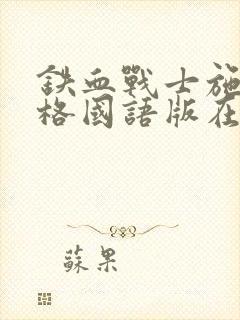 鉄血戰士施
格國語版在
蘇果